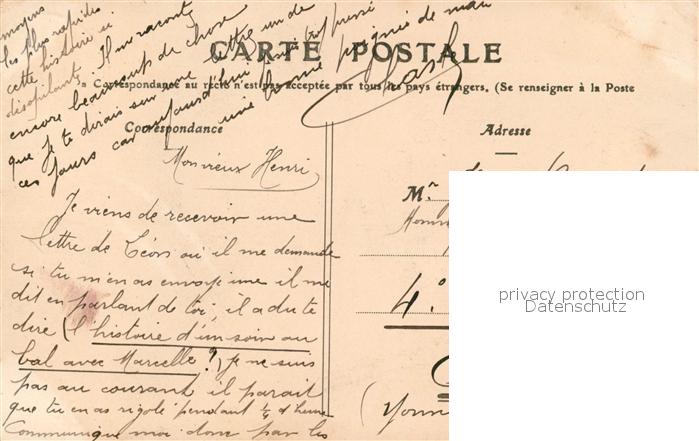 CARTE POSTALE
La Correspondance au recto n'est pas acceptée par tous les pays étrangers. (Se renseigner à la Poste
Correspondance
Mon vieux Henri
Je viens de recevoir une
lettre de Léon où il me demande
si tu m'en as envoyé une il me
dit en parlant de toi, il a du te
dire (l'histoire d'un soir au
bal avec Marcelle?) je ne suis
pas au courant il parait
que tu en as rigolé pendant 1/4 d'heure
Communique moi donc par les
moyens
les plus rapides
cette histoire si
désopilante. Il m'raconte
encore beaucoup de chose
que je te dirais sur une lettre un de
ces jours car aujourd'hui trop pressé
une bonne poignée de main
Adresse
Mr.
4°
(Yonn
privacy protection
Datenschutz